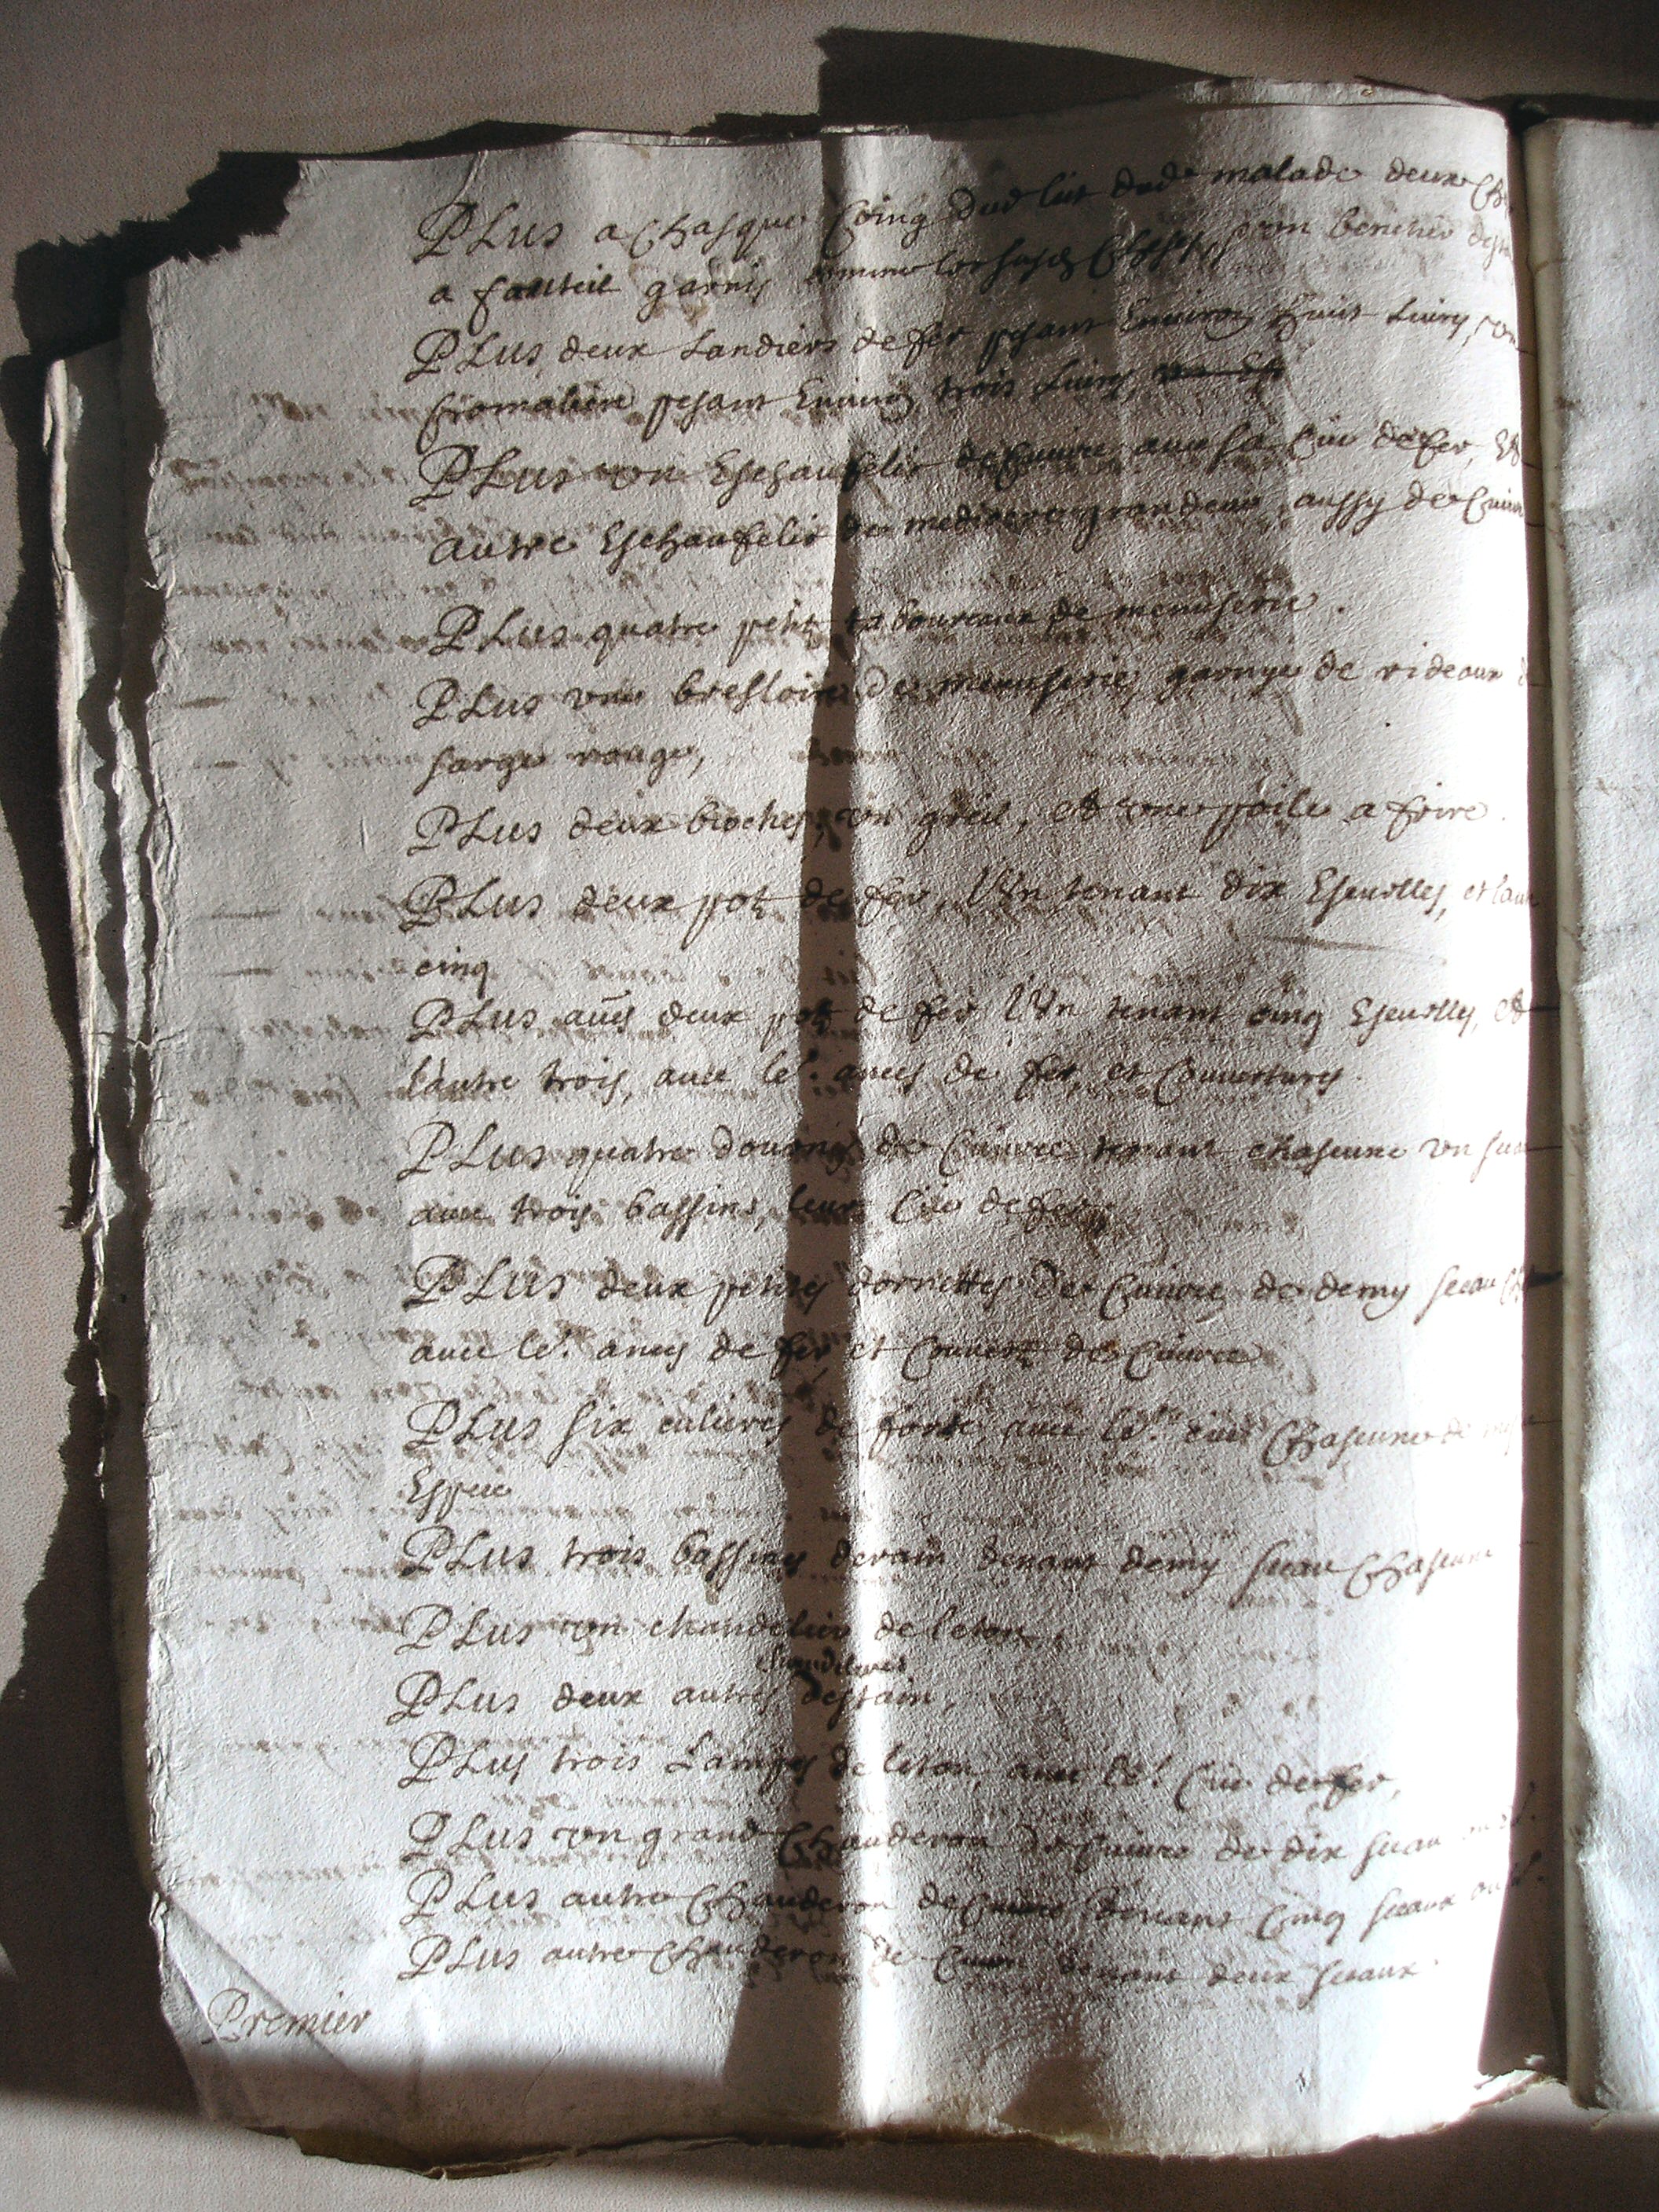 PLus a Chasque Coing dud lit dud malade deux
a fauteil garnis comme les susd Chses, un
PLus, deux Landiers de fer pesant Environ huit Liurs, un
Cromaliere pesant Enuiron trois Liurs,
PLus un Eschaufelit de Cuivre auec sa Cue de fer, Et
autre Eschaufelit de mediocre grandeur, aussy de Cuivre
PLus quatre petitz tabouraux de menuserie.
PLus une bresloire de menuserie, garnye de rideaux d
sarge rouge,
PLus deux broches, un greil, et une poile a frire.
PLus deux potz de fer, l'Un tenant dix Escuelles, et laut
cinq
PLus aues deux potz de fer l'Un tenant cinq Escuelles, et
lautre trois, auec le.rs ances de fer, et Couvertures.
PLus quatre dournes de Cuivre tenant chascune un seau
auec trois bassins, leur Cue de fer,
PLus deux petites dornettes de Cuivre de demy seeau
auec le.rs ances de fer et Couvertz de Cuivre
PLus six culieres de fonte auec le.rs cue Chascune de
Espece
PLus trois bassins derain denant demy seeau Chascun
PLus un chandelier de leton,
chandeliers
PLus deux autres destain,
PLus trois Lampes de leton, auec le.rs Cue de fer,
PLus un grand Chauderon de Cuivre de dix seeau
PLus autre Chauderon de Cuivre tenant Cinq seeaux
PLus autre Chauderon de Cuivre tenant deux seeaux.
Premier